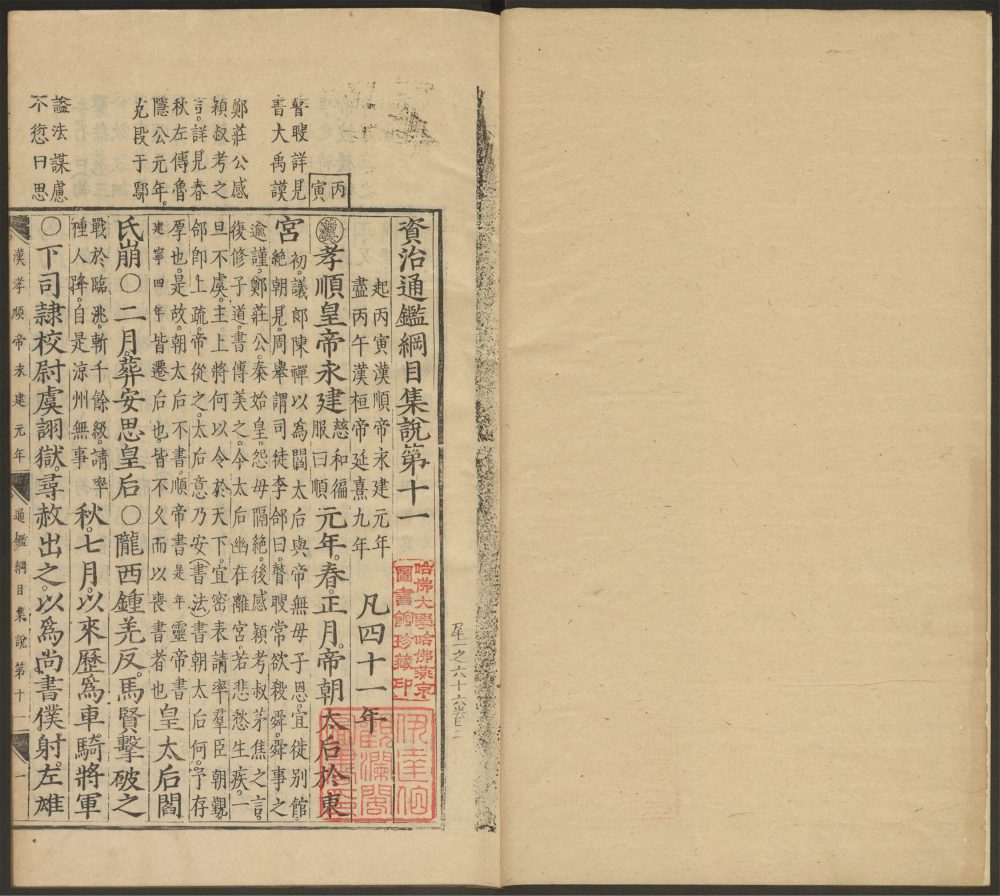 資治通鑑綱目集說第十一
起丙寅漢順帝永建元年
盡丙午漢桓帝延熹九年
凡四十一年
丙寅
漢
孝順皇帝永建
慈和徧
服曰順
元年。春。正月。帝朝太后於東
宮
初。議郎陳禪以為閻太后與帝無母子恩。宜徙別館。
絕朝見。周舉謂司徒李郃曰。瞽瞍常欲殺舜。舜事之
逾謹。鄭莊公。秦始皇。怨母隔絕。後感潁考叔茅焦之言。
復修子道。書傳美之。今太后幽在離宮。若悲愁生疾。一
旦不虞。主上將何以令於天下。宜密表請率羣臣朝覲。
郃卽上疏。帝從之。太后意乃安
書法
書朝太后何。予存
厚也。是故。朝太后不書。順帝書是年靈帝書
建寧四年皆遷后也。皆不久而以喪書者也
皇太后閻
氏崩〇二月。葬安思皇后〇隴西鍾羌反。馬賢擊破之
戰於臨洮。斬千餘級。請率
種人降。自是涼州無事
秋。七月。以來歷為車騎將軍
〇下司隸校尉虞詡獄。尋赦出之。以為尚書僕射。左雄
瞽瞍詳見
書大禹謨
鄭莊公感
潁叔考之
言。詳見春
秋左傳魯
隱公元年。
克段于鄢
謚法謀慮
不愆曰思
漢孝順帝永建元年
通鑑綱目集說第十一
一
哈佛大學哈佛燕京
圖書館珍藏印